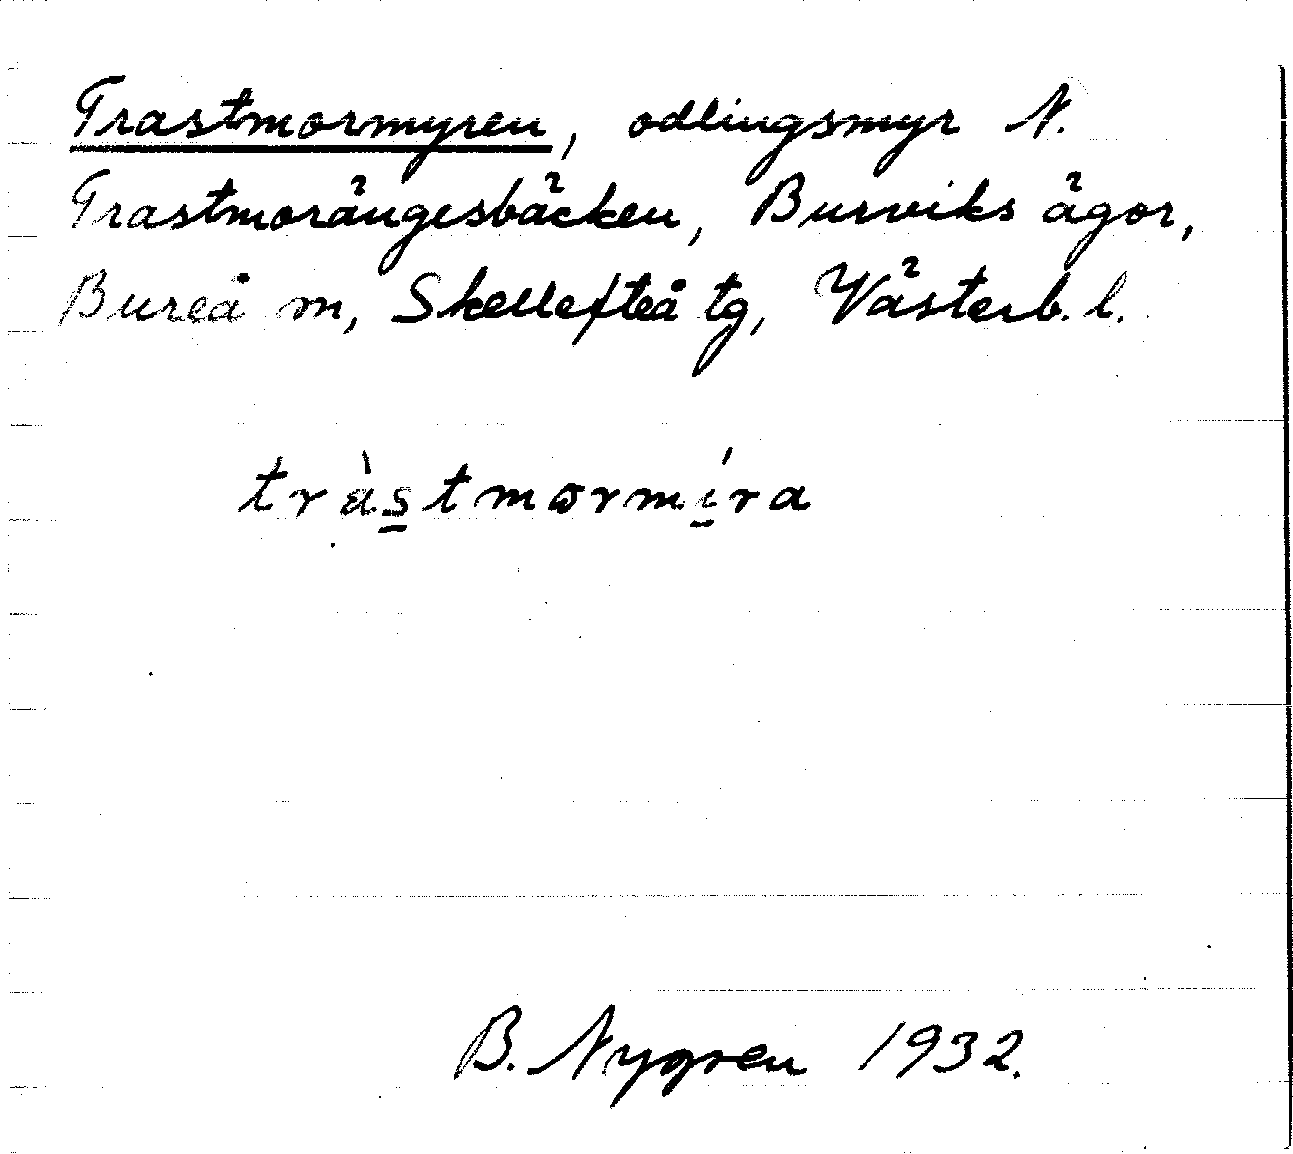 Trastmormyren, odlingsmyr N.
Trastmorängesbäcken, Burviks ägor,
Bureå m, Skellefteå tg, Västerb. l.
tràs̱tmormí̱ra
B. Nygren 1932.